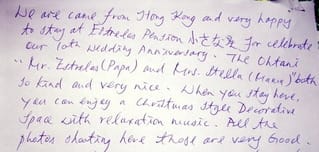 We are came from Hong Kong and very happy
to stay at Estrelas Pension for celebrate
our 10th wedding Anniversary. The Ohtani
"Mr. Estrelas (Papa) and Mrs. Stella (Mama)" both
so kind and very nice. When you stay here,
you can enjoy a Christmas Style Decorative
Space with relaxation music. All the
photos shooting here those are very Good.